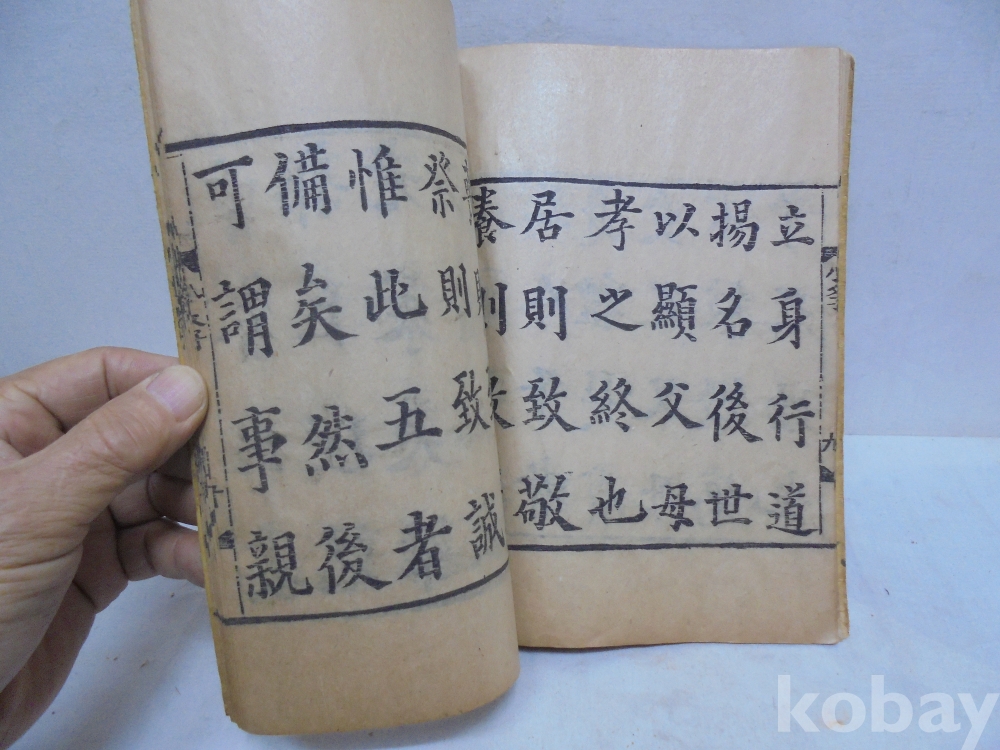 立身行道
揚名後世
以顯父母
孝之終也
居則致敬
養則致
祭則致誠
惟此五者
備矣然後
可謂事親
kobay